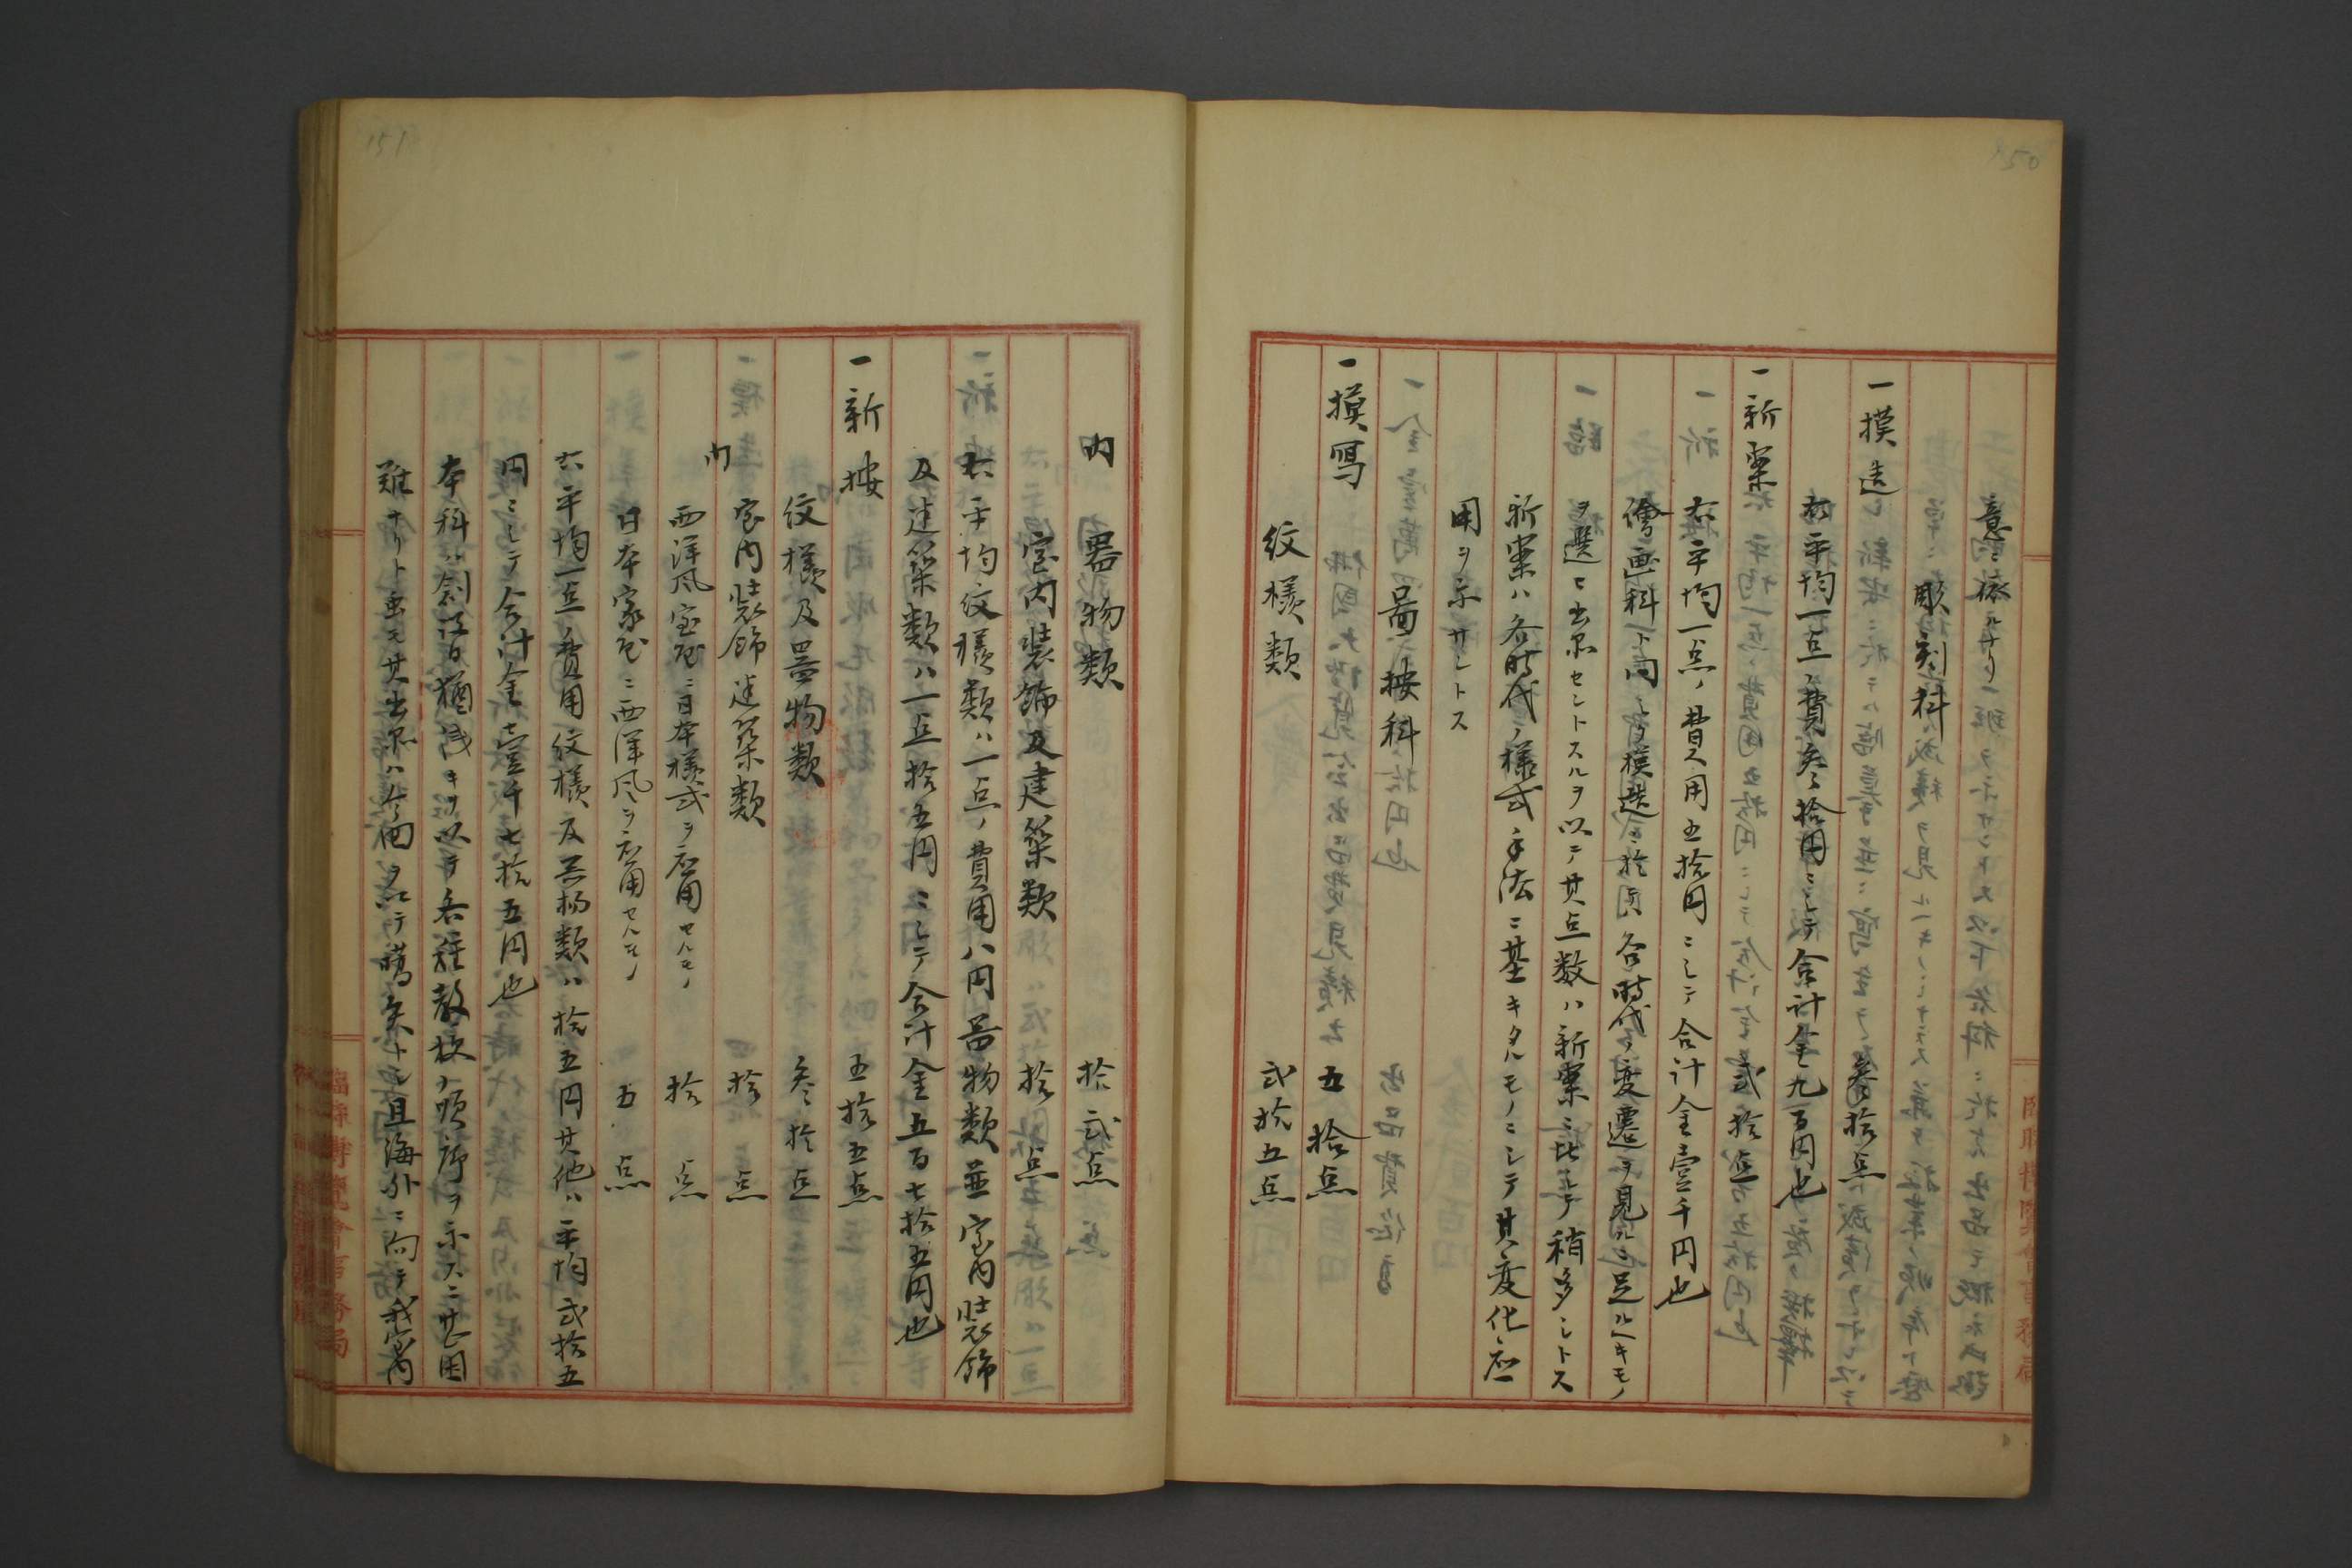 意ニ依ルナリ
彫刻科
一模造　参拾点
右平均一点ノ費参拾円ニシテ合計金九百円也
一新案　弐拾点
右平均一点ノ費用五拾円ニシテ合計金壹千円也
繪画科ト同シク模造ニ於テ各時代ノ変遷ヲ見ルニ足ルヘキモノ
ヲ選ヒ出品セントスルヲ以テ其点数ハ新案ニ比シテ稍多シトス
新案ハ各時代ノ様式手法ニ基キタルモノニシテ其変化応
用ヲ示サントス
図按科
一摸写　五拾点
紋様類　弐拾五点
内　器物類　拾弐点
室内装飾及建築類　拾点
右平均紋様類ハ一点ノ費用八円器物類並室内装飾
及建築類ハ一点拾五円ニシテ合計金五百七拾五円也
一新按　五拾五点
紋様及器物類　参拾点
内　室内装飾建築類　拾点
西洋風室屋ニ日本様式ヲ応用セルモノ　拾点
日本家屋ニ西洋風ヲ応用セルモノ　五点
右平均一点ノ費用紋様及器物類ハ拾五円其他ハ平均弐拾五
円ニシテ合計金壹千七拾五円也
本科ハ創設日猶浅キヲ以テ各種教授ノ順序ヲ示スニ甚困
難ナリト雖モ其出品ハ今回タニテ嚆矢トシ且海外ニ向テ我室内
臨時博覧會事務局
151
150